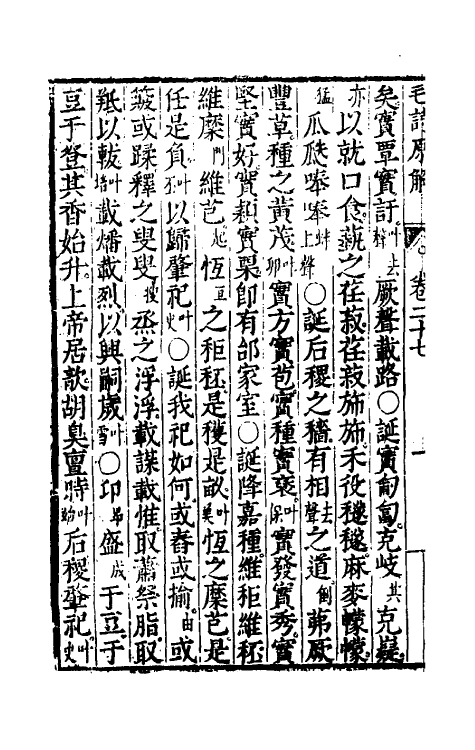 毛詩原解 卷二十七 一
矣實覃實訏叶去聲厥聲載路○誕實匍匐克岐其克嶷
亦以就口食蓺之荏菽荏菽斾斾禾役穟穟麻麥幪幪
猛瓜瓞唪唪蚌上聲○誕后稷之穡有相去聲之道倒茀厥
豐草種之黃茂叶卯實方實苞實種實褎叶保實發實秀實
堅實好實穎實栗即有邰家室○誕降嘉種維秬維秠
維穈門維芑起恆亘之秬秠是穫是畝叶美恆之穈芑是
任是負叶以歸肇祀叶史○誕我祀如何或舂或揄由或
簸或蹂釋之叟叟搜烝之浮浮載謀載惟取蕭祭脂取
羝以軷叶載燔載烈以興嗣歲叶雪○卬昻盛成于豆于
豆于登其香始升上帝居歆胡臭亶時叶后稷肇祀叶史